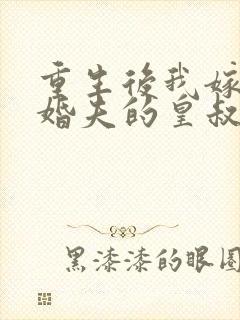 重生後我嫁
婚夫的皇叔
黑漆漆的眼圈